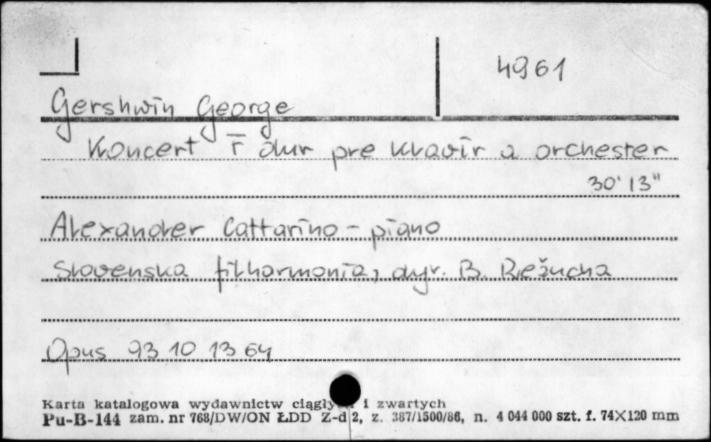 4961
Gershwin George
Koncert F dur pre klavír a orchester
30'13"
Alexander Cattarino - piano
Slovenska filharmonia, dyr. B. Režucha
Opus 93 10 13 64
Karta katalogowa wydawnictw i zwartych
Pu-B-144 zam. nr 768/DW/ON ŁDD Z-d 2, z. 387/1500/86, n. 4 044 000 szt. f. 74X120 mm